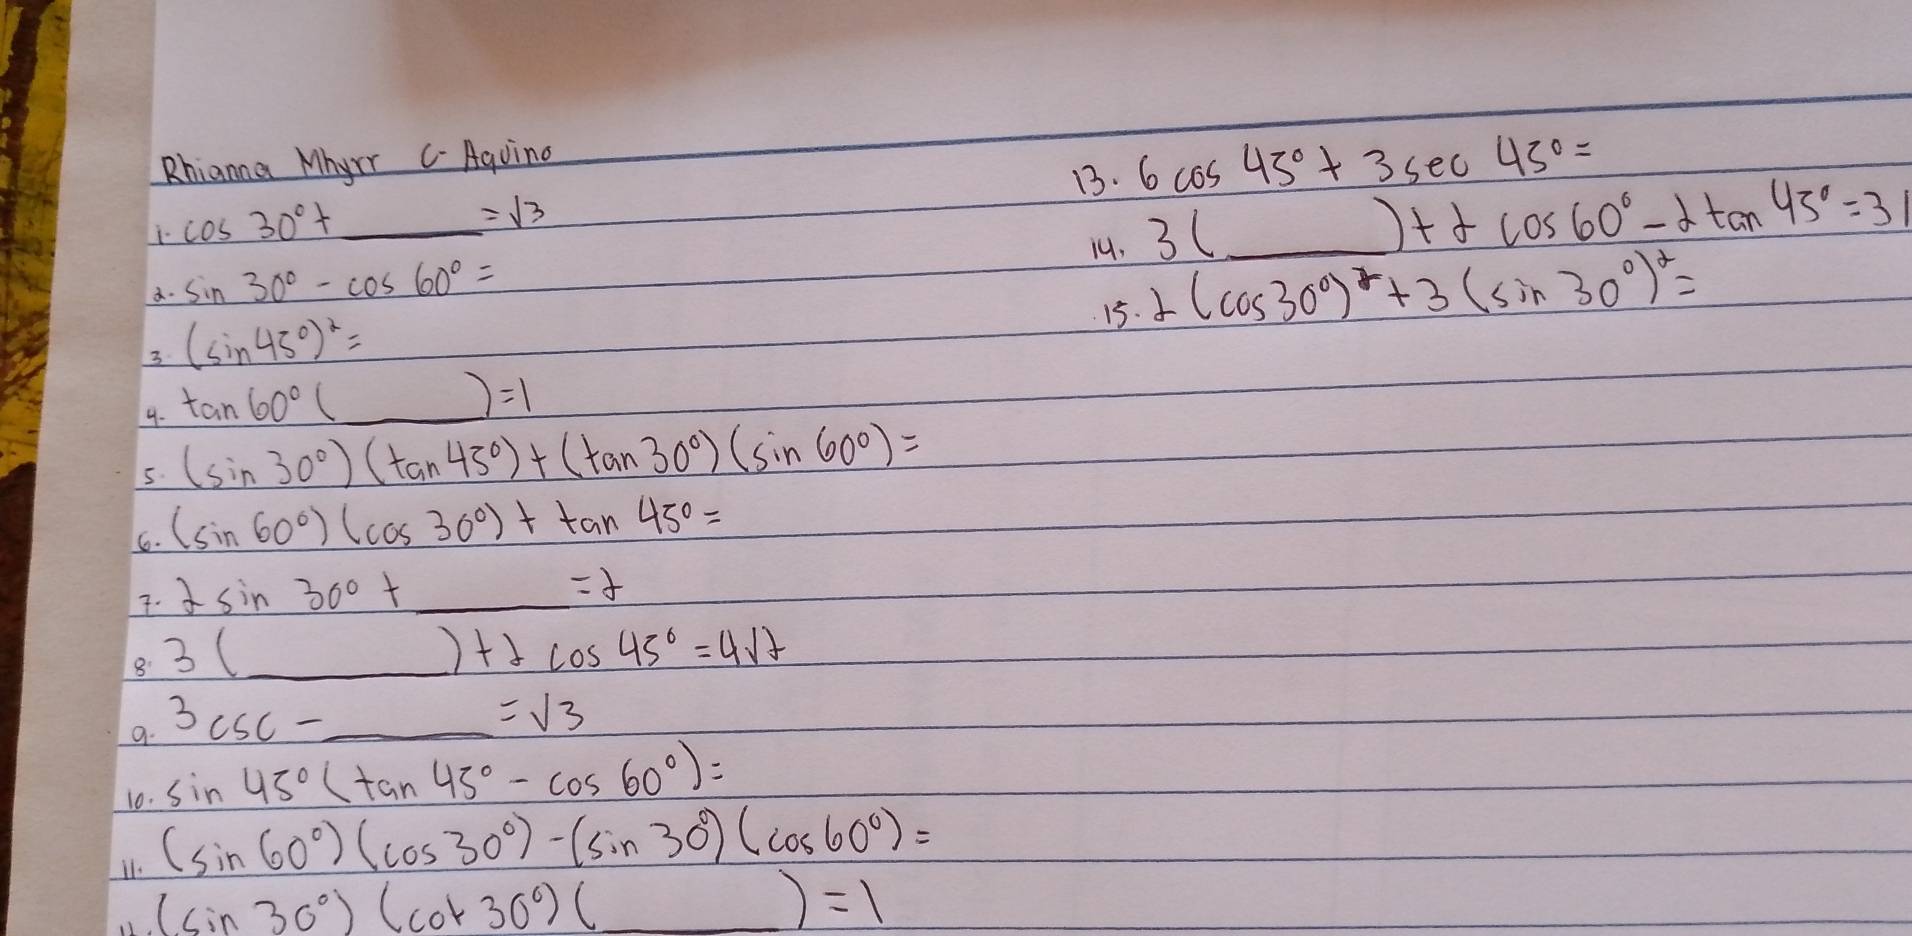 Rhianna Mhyrr C. Aquino
1. cos 30° + ____ = √3
2. sin 30° - cos 60° =
3. (sin 45°)² =
4. tan 60° ( ____ ) = 1
5. (sin 30°) (tan 45°) + (tan 30°) (sin 60°) =
6. (sin 60°) (cos 30°) + tan 45° =
7. 2 sin 30° + ____ = 2
8. 3 ( ____ ) + 2 cos 45° = 4√2
9. 3 csc - ____ = √3
10. sin 45° (tan 45° - cos 60°) =
11. (sin 60°) (cos 30°) - (sin 30°) (cos 60°) =
(sin 30°) (cot 30°) ( ____ ) = 1
13. 6 cos 45° + 3 sec 45° =
14. 3 ( ____ ) + 2 cos 60° - 2 tan 45° = 3
15. 2 (cos 30°)² + 3 (sin 30°)² =